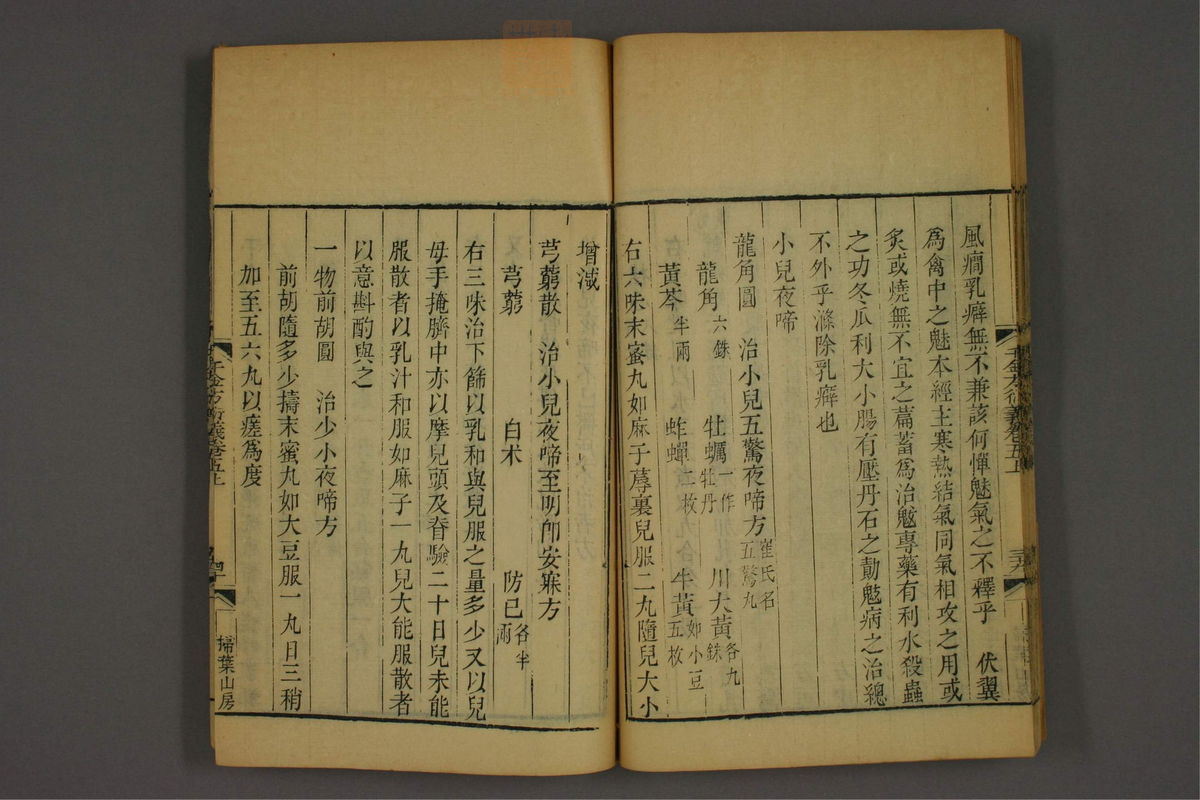 風癎乳癖無不兼該何憚魃氣之不釋乎　伏翼
爲禽中之魃本經主寒熱結氣同氣相攻之用或
炙或燒無不宜之篇蓄爲治魃專藥有利水殺蟲
之功冬瓜利大小腸有壓丹石之勣魃病之治總
不外乎滌除乳癖也
小兒夜啼
龍角圓　治小兒五驚夜啼方崔氏名五驚九
龍角六銖　牡蠣一作牡丹　川大黃各九銖
黃芩半兩　蚱蟬二枚　牛黃如小豆五枚
右六味末蜜丸如麻子蓐裏兒服二九隨兒大小
增減
芎藭散　治小兒夜啼至明卽安寐方
芎藭　白术　防已各半兩
右三味治下篩以乳和與兒服之量多少又以兒
母手掩臍中亦以摩兒頭及脊驗二十日兒未能
服散者以乳汁和服如麻子一丸兒大能服散者
以意斟酌與之
一物前胡圓　治少小夜啼方
前胡隨多少擣末蜜丸如大豆服一九日三稍
加至五六九以瘥爲度
千金方衍義卷五上
四十
掃葉山房